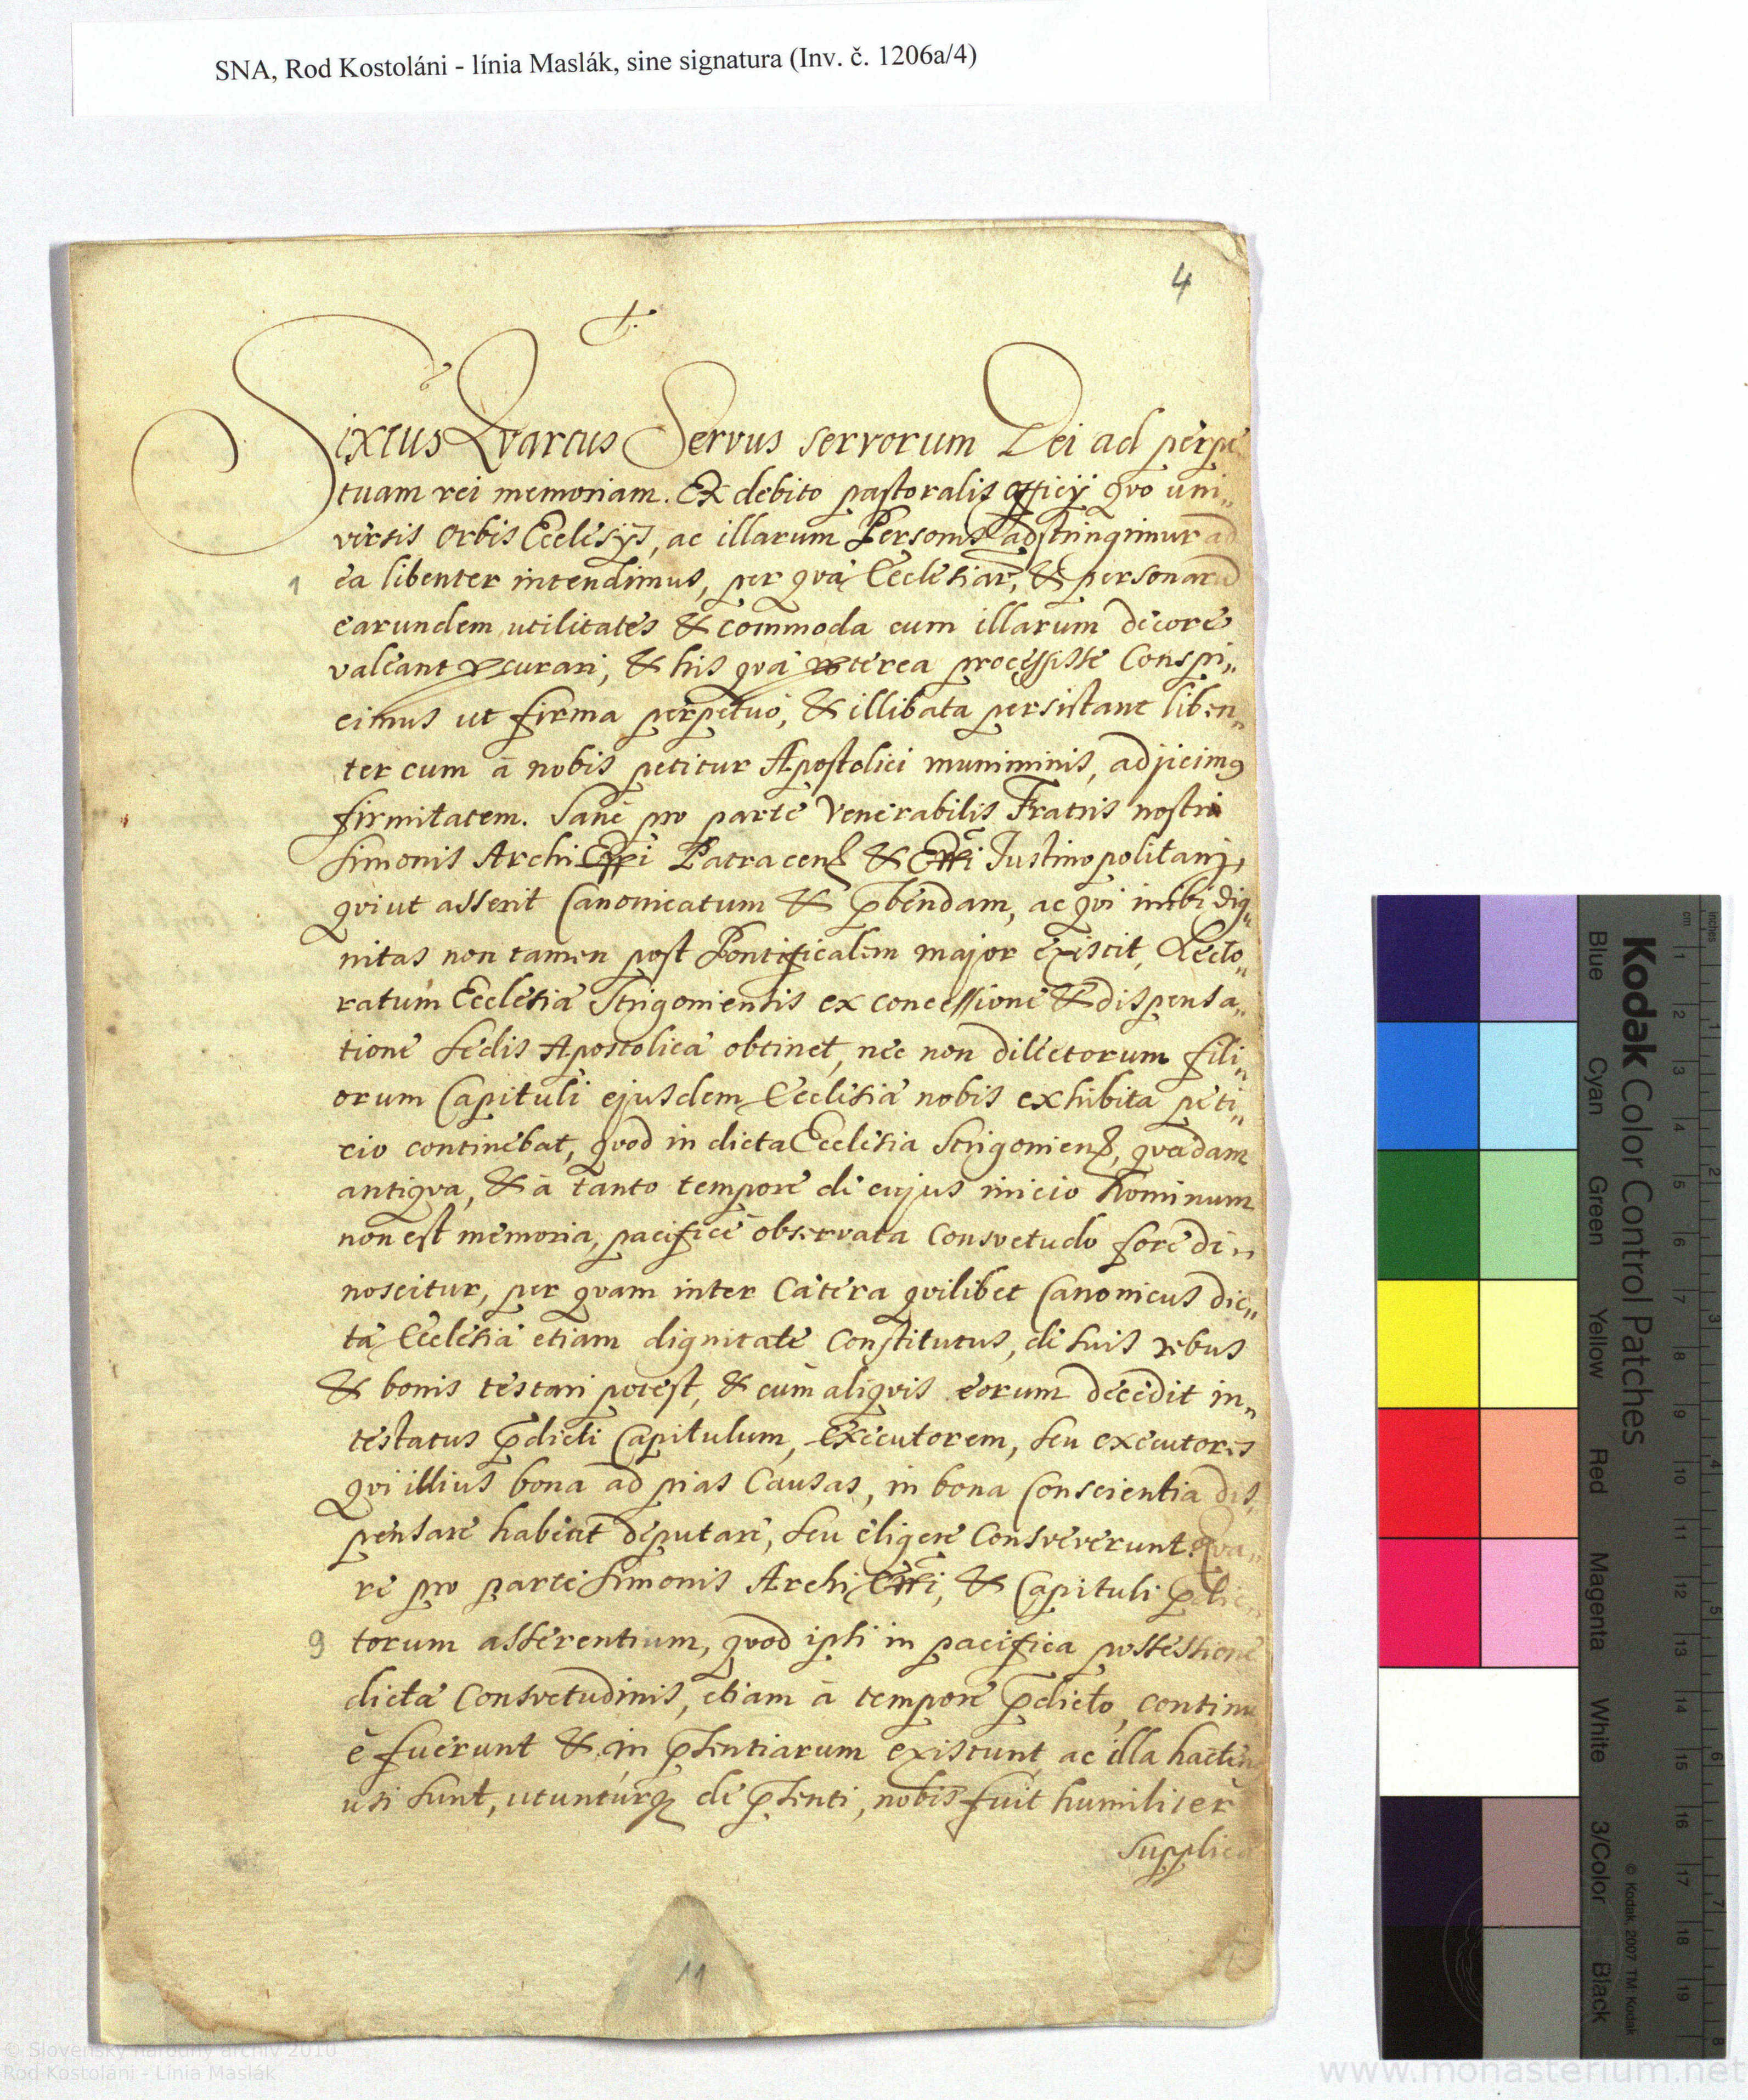 SNA, Rod Kostoláni - línia Maslák, sine signatura (Inv. č. 1206a/4)
4
Sixtus Qvartus Servus servorum Dei ad perpe
tuam rei memoriam. Ex debito pastoralis officÿ qvo uni„
versis Orbis Ecclesÿs, ac illarum Personis adstringimur ad
1 ea libenter intendimus, per qvæ Ecclesiar̄, & personarū
earundem utilitates & commoda cum illarum decore
valeant procurari, & his qvæ propterea processisse Conspi„
cimus ut firma perpetuo, & illibata persistant liben„
ter cum à nobis petitur Apostolici muniminis, adjicimus
firmitatem. Sane pro parte Venerabilis Fratris nostri
Simonis ArchiEppi Patracens & Eppi Justinopolitani,
qvi ut asserit Canonicatum & p̄bendam, ac qvi inibi dig„
nitas non tamen post Pontificalem major existit, Lecto„
ratum Ecclesiæ Strigoniensis ex concessione & dispensa„
tione Sedis Apostolicæ obtinet, nec non dilectorum fili„
orum Capituli ejusdem Ecclesiæ nobis exhibita peti„
tio continebat, qvod in dicta Ecclesia Strigoniens, qvædam
antiqva, & à tanto tempore de cujus initio Hominum
non est memoria, pacifice observata Consvetudo fore di„
noscitur, per qvam inter Cætera qvilibet Canonicus dic„
tæ Ecclesiæ etiam dignitate Constitutus, de suis rebus
& bonis testari potest, & cum aliqvis eorum decedit in„
testatus p̄dicti Capitulum, Executorem, seu executores
qvi illius bona ad pias Causas, in bona Conscientia dis„
pensare habeat deputare, seu eligere Consveverunt. Qva„
re pro parte Simonis ArchiEppi, & Capituli p̄dic„
9 torum asserentium, qvod ipsi in pacifica possessione
dictæ Consvetudinis, etiam à tempore p̄dicto, continu
è fuerunt & in p̄sentiarum existunt, ac illa hacten
usi sunt, utunturq de p̄senti, nobis fuit humiliter
Supplica
11
Kodak Color Control Patches
Blue Cyan Green Yellow Red Magenta White 3/Color Black
© Kodak, 2007 TM: Kodak
inches 1 2 3 4 5 6 7 8
cm 1 2 3 4 5 6 7 8 9 10 11 12 13 14 15 16 17 18 19
© Slovenský národný archív 2010
Rod Kostoláni - Línia Maslák
www.monasterium.net